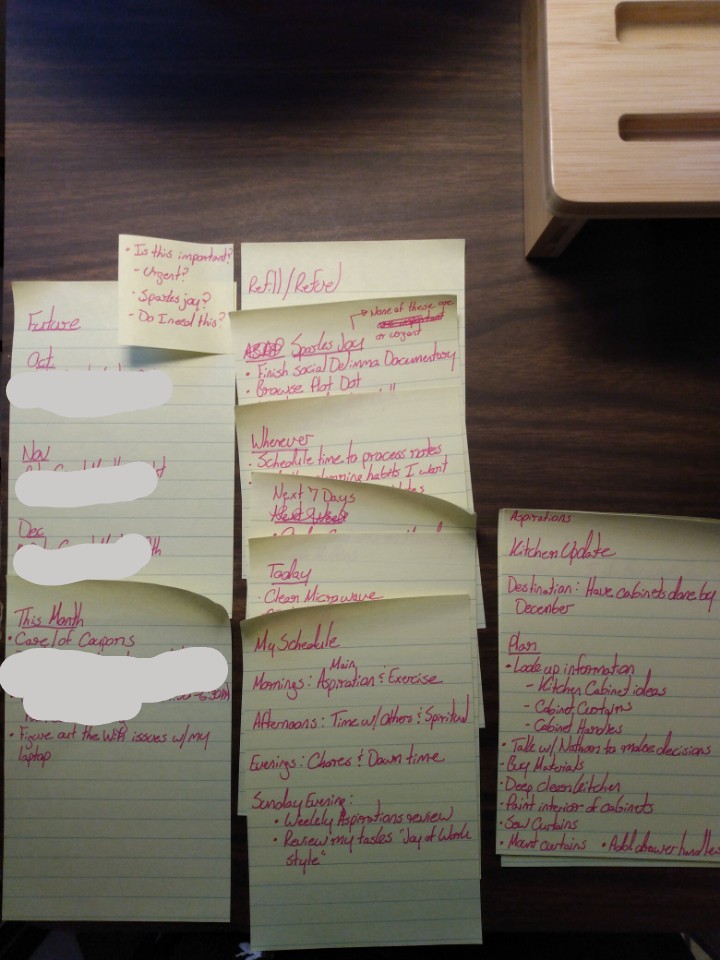 • Is this important?
- Urgent?
• Sparks joy?
- Do I need this?
Future
Oct
Nov
Dec
This Month
• Care/of Coupons
• Figure out the Wifi issues w/ my
laptop
Refill/Refuel
ASAP Sparks Joy
→ None of these are
or urgent
• Finish Social Delimma Documentary
• Browse Plot Dot
Whenever
• Schedule time to process notes
habits I want
Next 7 Days
Today
- Clean Microwave
My Schedule
Main
Mornings: Aspiration & Exercise
Afternoons: Time w/ Others & Spiritual
Evenings: Chores & Down time
Sunday Evening:
• Weekly Aspirations review
• Review my tasks "Joy at Work
style"
Aspirations
Kitchen Update
Destination: Have cabinets done by
December
Plan
• Look up information
- Kitchen Cabinet ideas
- Cabinet Curtains
- Cabinet Handles
• Talk w/ Nathan to make decisions
- Buy Materials
• Deep clean kitchen
• Paint interior of cabinets
• Sew Curtains
• Mount curtains • Add drawer handles